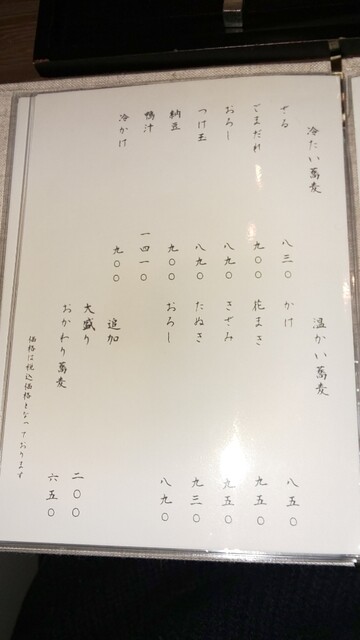 冷たい蕎麦
ざる 八三〇
ごまだれ 九〇〇
おろし 八九〇
つけ玉 八九〇
納豆 九〇〇
鴨汁 一四一〇
冷かけ 九〇〇
温かい蕎麦
かけ 八五〇
花まき 九五〇
きざみ 九五〇
たぬき 九三〇
おろし 八九〇
追加
大盛り 二〇〇
おかわり蕎麦 六五〇
価格は税込価格となっております